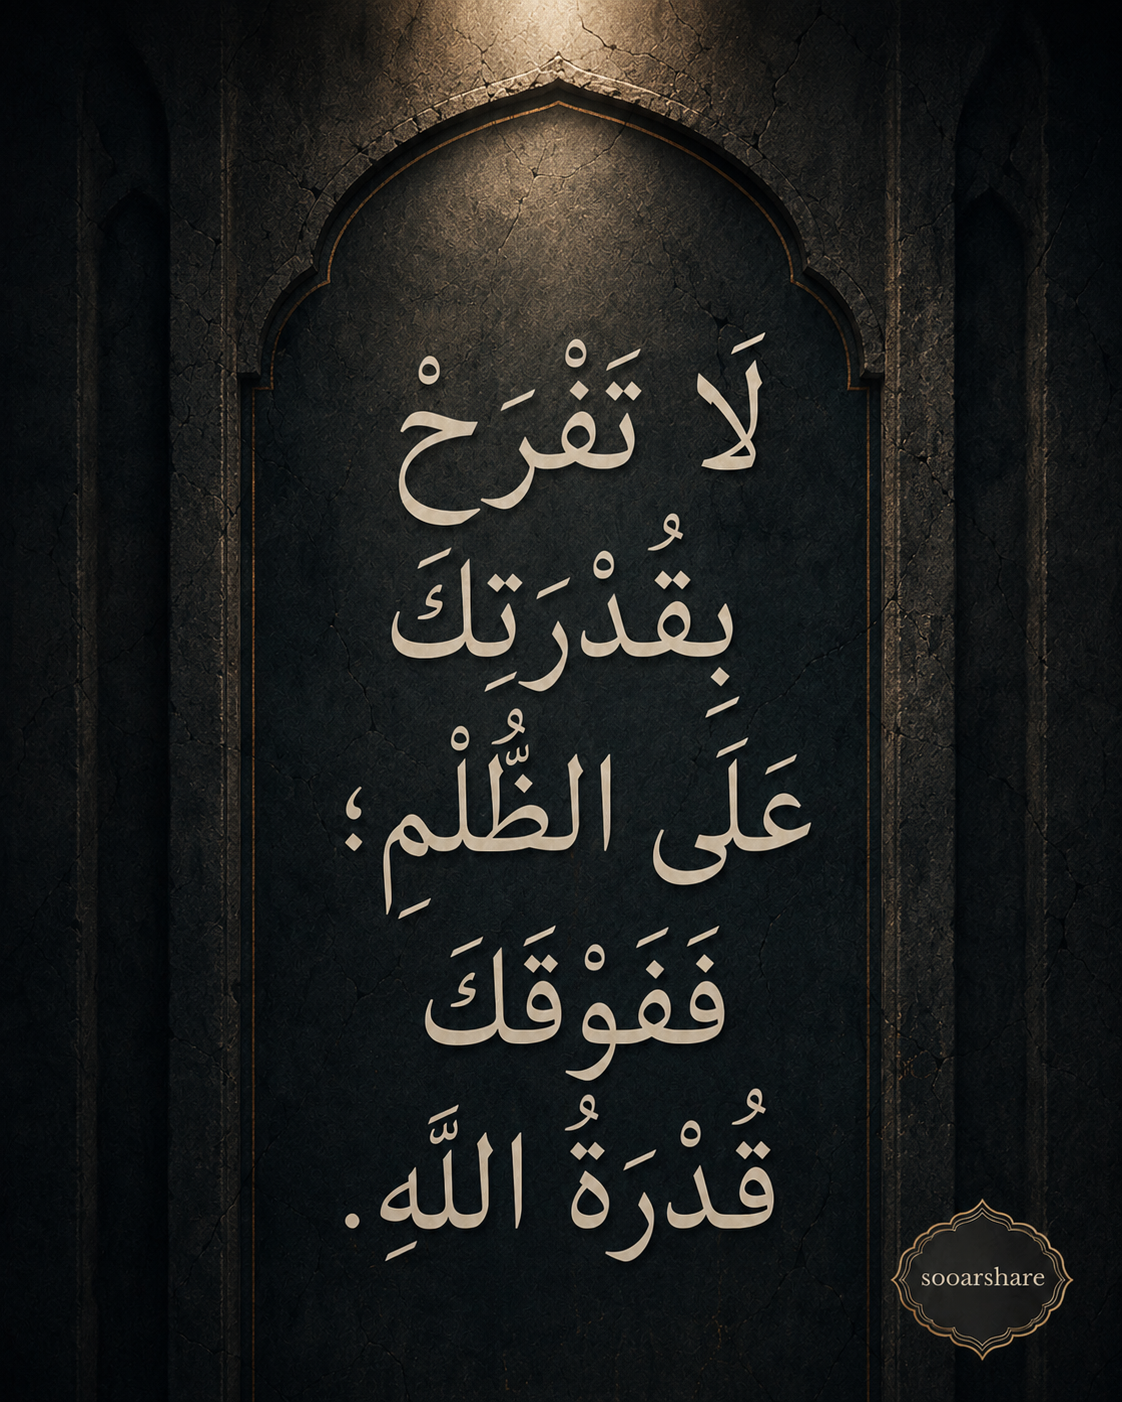 لَا تَفْرَحْ
بِقُدْرَتِكَ
عَلَى الظُّلْمِ؛
فَفَوْقَكَ
قُدْرَةُ اللَّهِ.
sooarshare